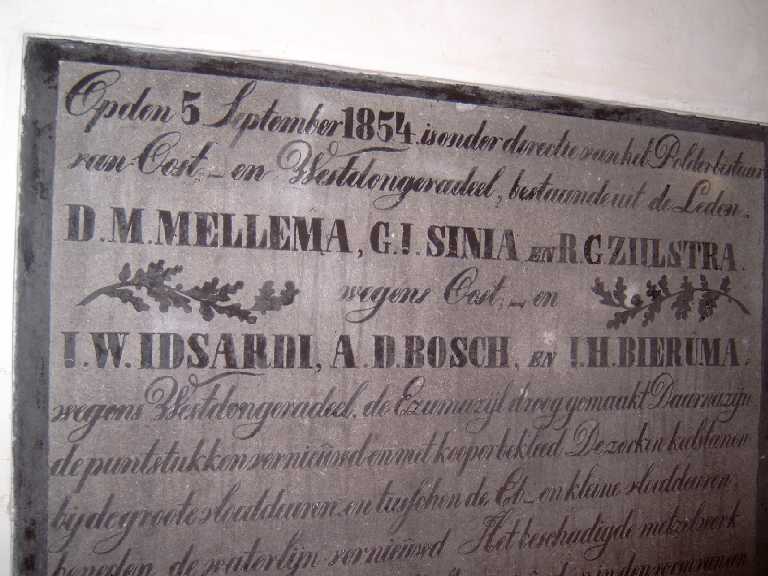 Op den 5 September 1854. is onder directie van het Polderbestuur
van Oost,_ en Westdongeradeel, bestaande uit de Leden.
D.M.MELLEMA, G.I.SINIA EN R.G ZIILSTRA.
wegens Oost,_ en
I.W.IDSARDI, A.D.BOSCH, EN I.H.BIERUMA.
wegens Westdongeradeel, de Ezumazijl droog gemaakt Daarna zijn
de puntstukken vernieuwd en met kooper bekleed. De zerken
bij de groote sluisdeuren en tusschen de Eb_ en kleine sluisdeuren.
beneden de waterlijn vernieuwd Het beschadigde metselwerk
in den